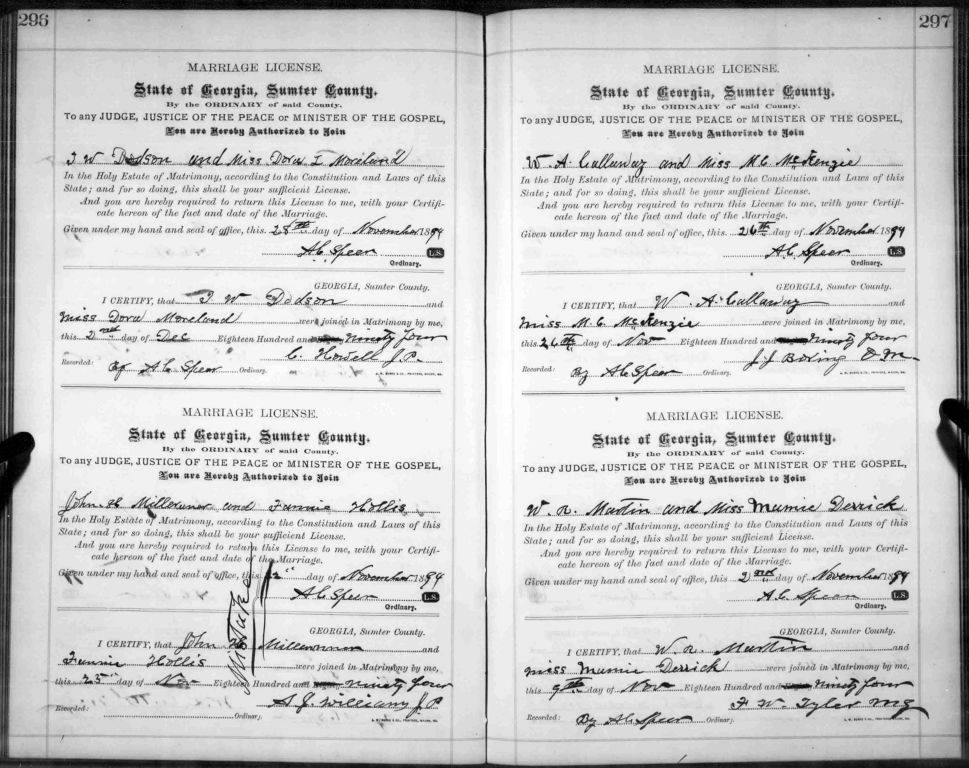 296
MARRIAGE LICENSE.
State of Georgia, Sumter County.
By the ORDINARY of said County.
To any JUDGE, JUSTICE OF THE PEACE or MINISTER OF THE GOSPEL,
You are Hereby Authorized to Join
J W Dodson and Miss Dora I Moreland
In the Holy Estate of Matrimony, according to the Constitution and Laws of this
State; and for so doing, this shall be your sufficient License.
And you are hereby required to return this License to me, with your Certifi-
cate hereon of the fact and date of the Marriage.
Given under my hand and seal of office, this 28th day of November 1894
A C Speer L.S.
Ordinary.
GEORGIA, Sumter County.
I CERTIFY, that J W Dodson and
Miss Dora Moreland were joined in Matrimony by me,
this 2nd day of Dec Eighteen Hundred and Ninety four
C. Howell J.P.
Recorded: By A C Speer Ordinary.
MARRIAGE LICENSE.
State of Georgia, Sumter County.
By the ORDINARY of said County.
To any JUDGE, JUSTICE OF THE PEACE or MINISTER OF THE GOSPEL,
You are Hereby Authorized to Join
John H and Fannie Hollis
In the Holy Estate of Matrimony, according to the Constitution and Laws of this
State; and for so doing, this shall be your sufficient License.
And you are hereby required to return this License to me, with your Certifi-
cate hereon of the fact and date of the Marriage.
Given under my hand and seal of office, this day of November 1894
A C Speer L.S.
Ordinary.
Mistake
GEORGIA, Sumter County.
I CERTIFY, that John H and
Fannie Hollis were joined in Matrimony by me,
this 25 day of Nov Eighteen Hundred and ninety four
S. J. Williams J P
Recorded: Ordinary.
297
MARRIAGE LICENSE.
State of Georgia, Sumter County.
By the ORDINARY of said County.
To any JUDGE, JUSTICE OF THE PEACE or MINISTER OF THE GOSPEL,
You are Hereby Authorized to Join
W. A. Callaway and Miss M. C. McKenzie
In the Holy Estate of Matrimony, according to the Constitution and Laws of this
State; and for so doing, this shall be your sufficient License.
And you are hereby required to return this License to me, with your Certifi-
cate hereon of the fact and date of the Marriage.
Given under my hand and seal of office, this 26th day of November 1894
A C Speer L.S.
Ordinary.
GEORGIA, Sumter County.
I CERTIFY, that W. A. Callaway and
Miss M. C. McKenzie were joined in Matrimony by me,
this 26th day of Nov Eighteen Hundred and ninety four
J. J. Boring
Recorded: By A C Speer Ordinary.
MARRIAGE LICENSE.
State of Georgia, Sumter County.
By the ORDINARY of said County.
To any JUDGE, JUSTICE OF THE PEACE or MINISTER OF THE GOSPEL,
You are Hereby Authorized to Join
W. R. Martin and Miss Mamie Derrick
In the Holy Estate of Matrimony, according to the Constitution and Laws of this
State; and for so doing, this shall be your sufficient License.
And you are hereby required to return this License to me, with your Certifi-
cate hereon of the fact and date of the Marriage.
Given under my hand and seal of office, this 2nd day of November 1894
A. C. Speer L.S.
Ordinary.
GEORGIA, Sumter County.
I CERTIFY, that W. R. Martin and
Miss Mamie Derrick were joined in Matrimony by me,
this 9th day of Nov Eighteen Hundred and Ninety four
F. W. Tyler M G
Recorded: By A C Speer Ordinary.